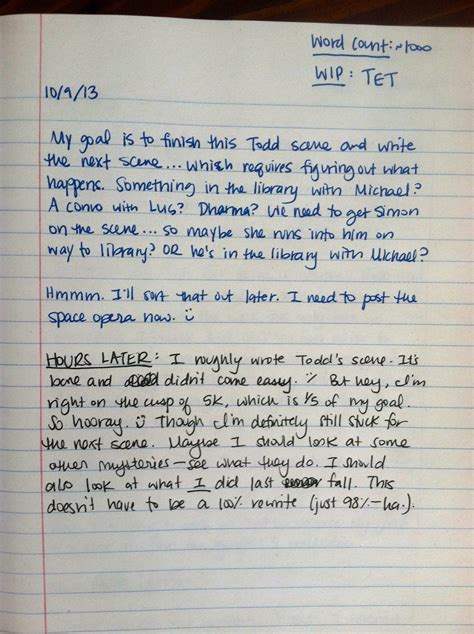 Word Count: ~1000
WIP: TET
10/9/13
My goal is to finish this Todd scene and write
the next scene... which requires figuring out what
happens. Something in the library with Michael?
A convo with Luis? Dharma? We need to get Simon
on the scene... so maybe she runs into him on
way to library? OR he's in the library with Michael?
Hmmm. I'll sort that out later. I need to post the
space opera now. :)
HOURS LATER: I roughly wrote Todd's scene. It's
bare and didn't come easy. :/ But hey, I'm
right on the cusp of 5K, which is 1/5 of my goal.
So hooray. :) Though I'm definitely still stuck for
the next scene. Maybe I should look at some
other mysteries—see what they do. I should
also look at what I did last fall. This
doesn't have to be a 100% rewrite (just 98%-ha.).